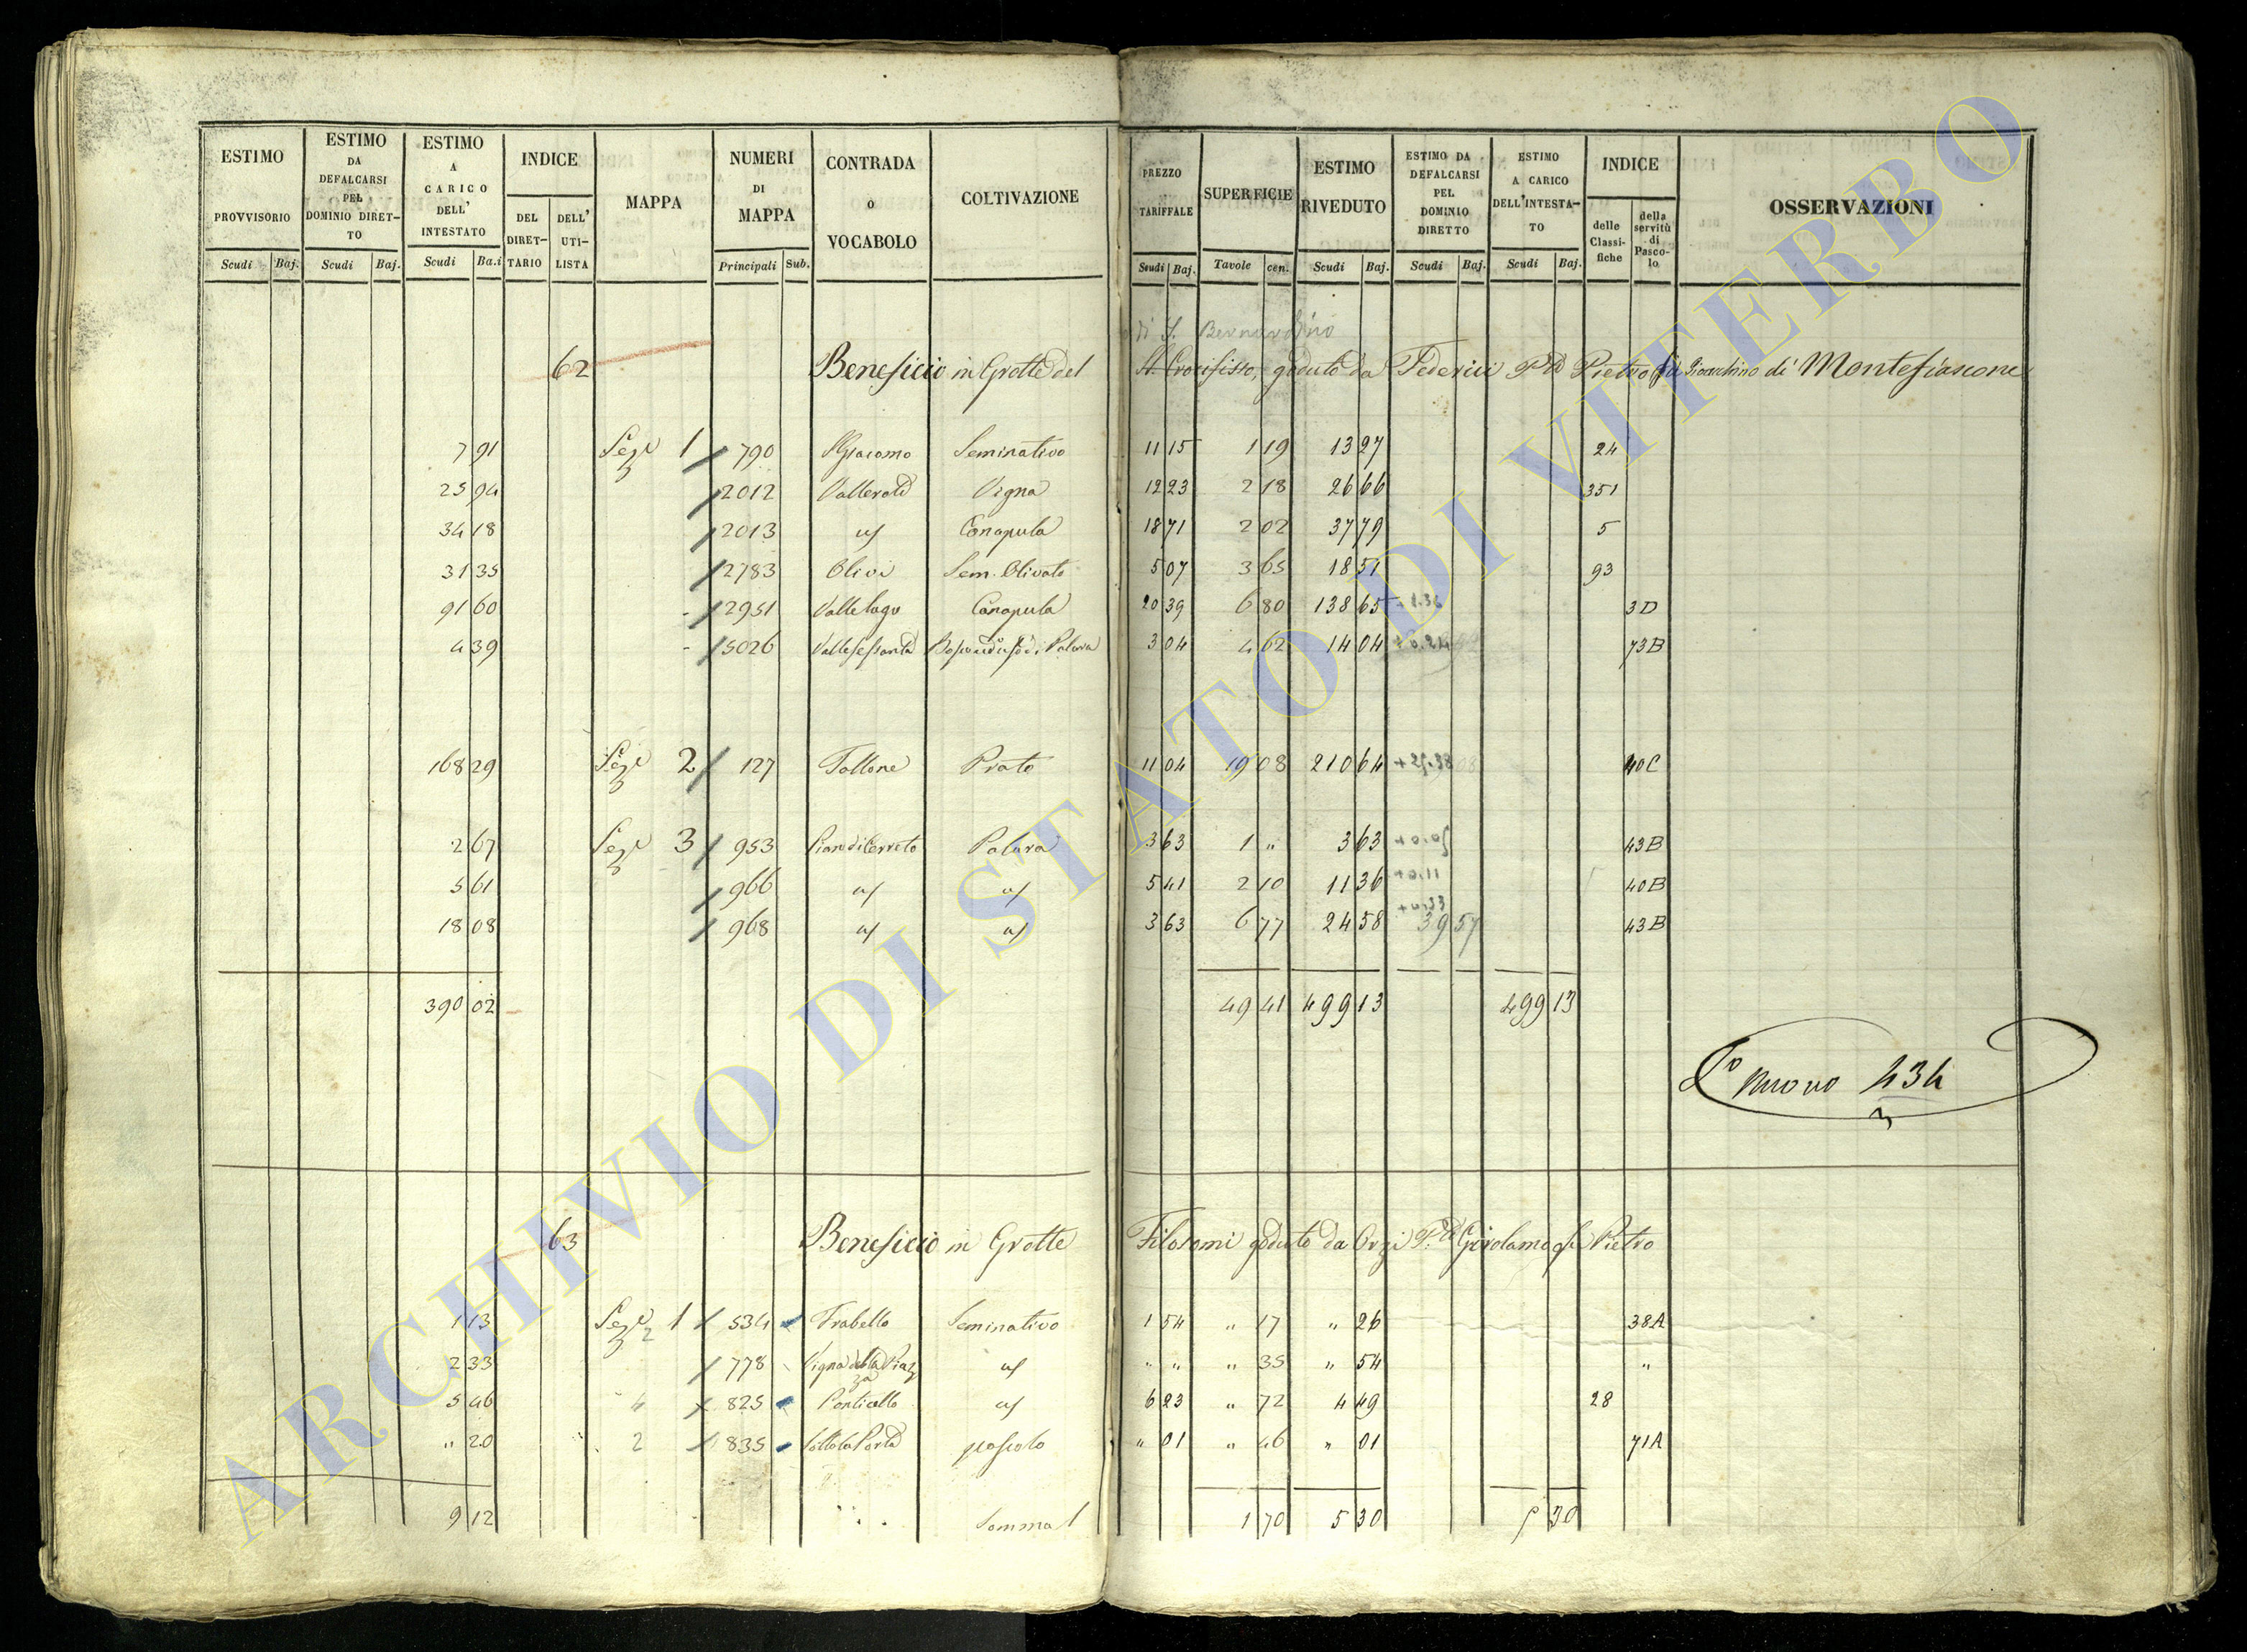 ESTIMO PROVVISORIO Scudi Baj.
ESTIMO DA DEFALCARSI PEL DOMINIO DIRETTO Scudi Baj.
ESTIMO A CARICO DELL' INTESTATO Scudi Ba.i
INDICE DEL DIRETTARIO DELL' UTILISTA
MAPPA
NUMERI DI MAPPA Principali Sub.
CONTRADA O VOCABOLO
COLTIVAZIONE
PREZZO TARIFFALE Scudi Baj.
SUPERFICIE Tavole cen.
ESTIMO RIVEDUTO Scudi Baj.
ESTIMO DA DEFALCARSI PEL DOMINIO DIRETTO Scudi Baj.
ESTIMO A CARICO DELL'INTESTATO Scudi Baj.
INDICE delle Classifiche della servitù di Pascolo
OSSERVAZIONI
di S. Bernardino
62 Beneficio in Grotte del S. Crocifisso, goduto da Federici Pietro Gioacchino di Montefiascone
7 91 Sezе 1 790 S Giacomo Seminativo 11 15 1 19 13 27 24
25 94 2012 Vallerota Vigna 12 23 2 18 26 66 351
34 18 2013 Canapula 18 71 2 02 37 79 5
31 35 2783 Olivi Sem. Olivato 5 07 3 65 18 51 93
91 60 2951 Vallelago Canapula 20 39 6 80 138 65 +1.36 3D
4 39 5026 3 04 4 62 14 04 73B
168 29 Seze 2 127 Tollone Prato 11 04 19 08 210 64 40C
2 67 Seze 3 953 Piano di Cerreto Palara 3 63 1 " 3 63 43B
5 61 966 5 41 2 10 11 36 +0.11 40B
18 08 968 3 63 6 77 24 58 39 57 43B
390 02 49 41 499 13 499 13
nuovo 434
63 Beneficio in Grotte Filosomi goduto da Orzi Girolamo Pietro
1 13 Seze 1 534 Trabello Seminativo 1 54 " 17 " 26 38A
2 33 778 Vigna della Piazza " " " 35 " 54 "
5 46 4 825 Ponticello 6 23 " 72 4 49 28
" 20 2 835 Sotto la Porta pascolo " 01 " 46 " 01 71A
9 12 Somma 1 70 5 30 5 30
ARCHIVIO DI STATO DI VITERBO